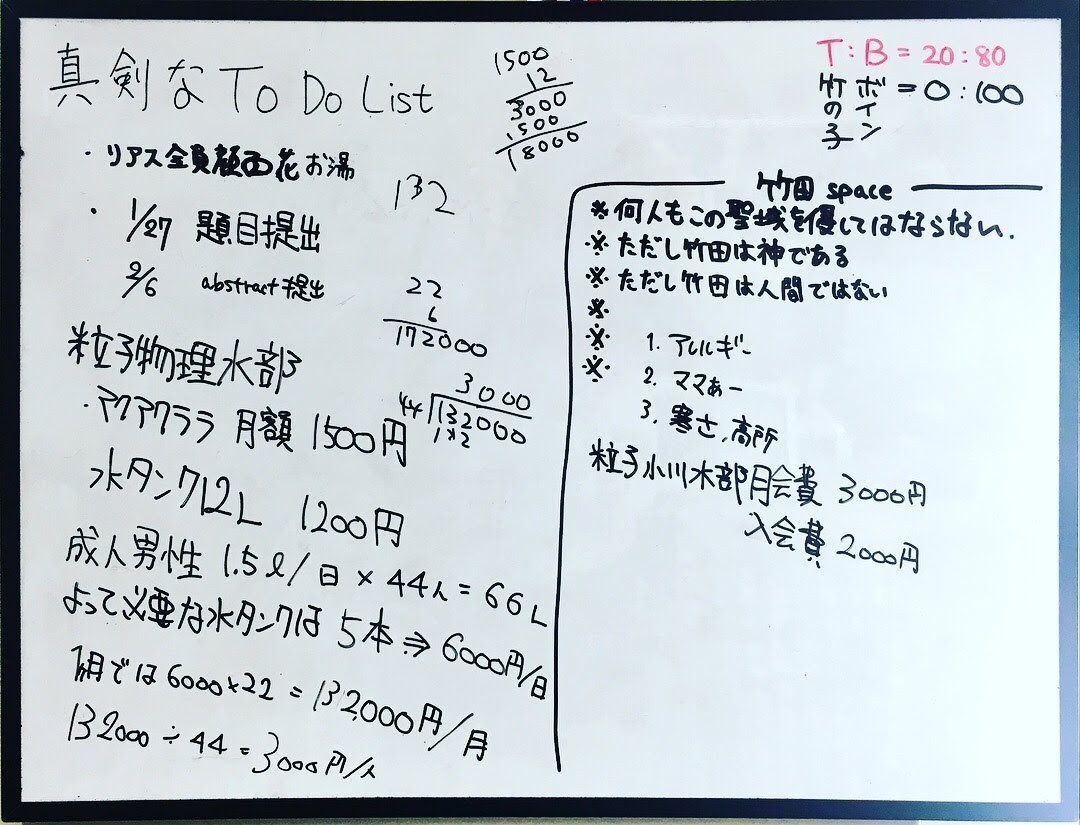 真剣な To Do List
・リアス全員顔面花お湯
・1/27 題目提出
2/6 abstract提出
粒子物理水部
・アクアクララ 月額 1500円
水タンク12L 1200円
成人男性 1.5ℓ/日 × 44人 = 66L
よって必要な水タンクは 5本 ⇒ 6000円/日
1ヶ月では 6000×22 = 132,000円/月
132000 ÷ 44 = 3000円/人
1500
12
3000
1500
18000
132
22
6
172000
3000
44 132000
132
T:B = 20:80
竹の子 ボイン = 0:100
竹田 space
※何人もこの聖域を優してはならない.
※ただし竹田は神である
※ただし竹田は人間ではない
※
※ 1. アレルギー
※ 2. ママぁー
3. 寒さ、高所
粒子小川木部月会費 3000円
入会費 2000円